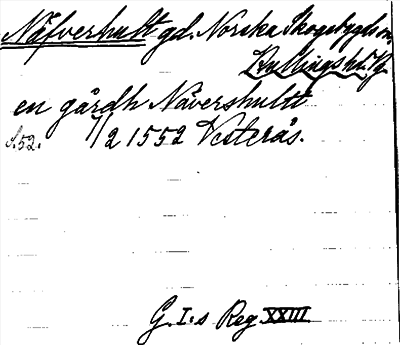 Näfverhult gd. Norska Skogsbygds sn,
Kullings hd. Ä.
en gårdh Nävershultt
s. 52. 1/2 1552 Vesterås.
G. I:s Reg XXIII